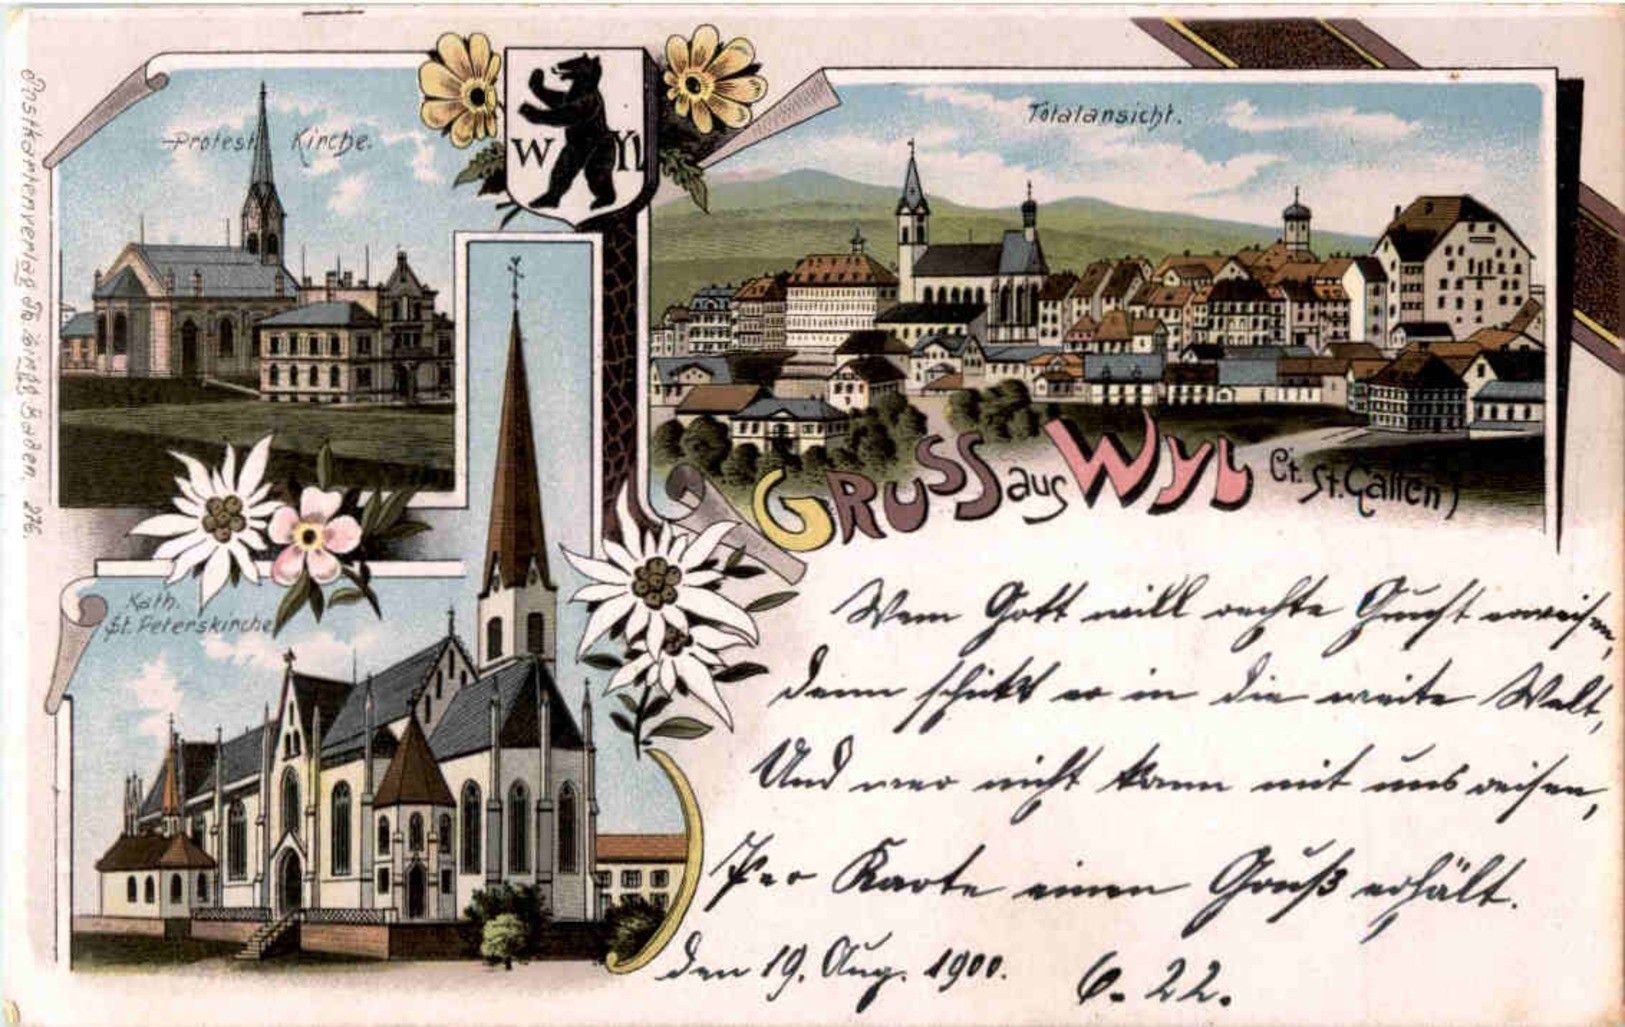 Protest. Kirche.
W Yl
Totalansicht.
Postkartenverlag
Baden. 276.
Gruss aus Wyl (Ct. St. Gallen)
Kath.
St. Peterskirche
Wem Gott will rechte Gunst erweisen,
denn schickt er in die weite Welt,
Und wer nicht kann mit uns reisen,
Per Karte einen Gruß erhält.
den 19. Aug. 1900.
6. 22.